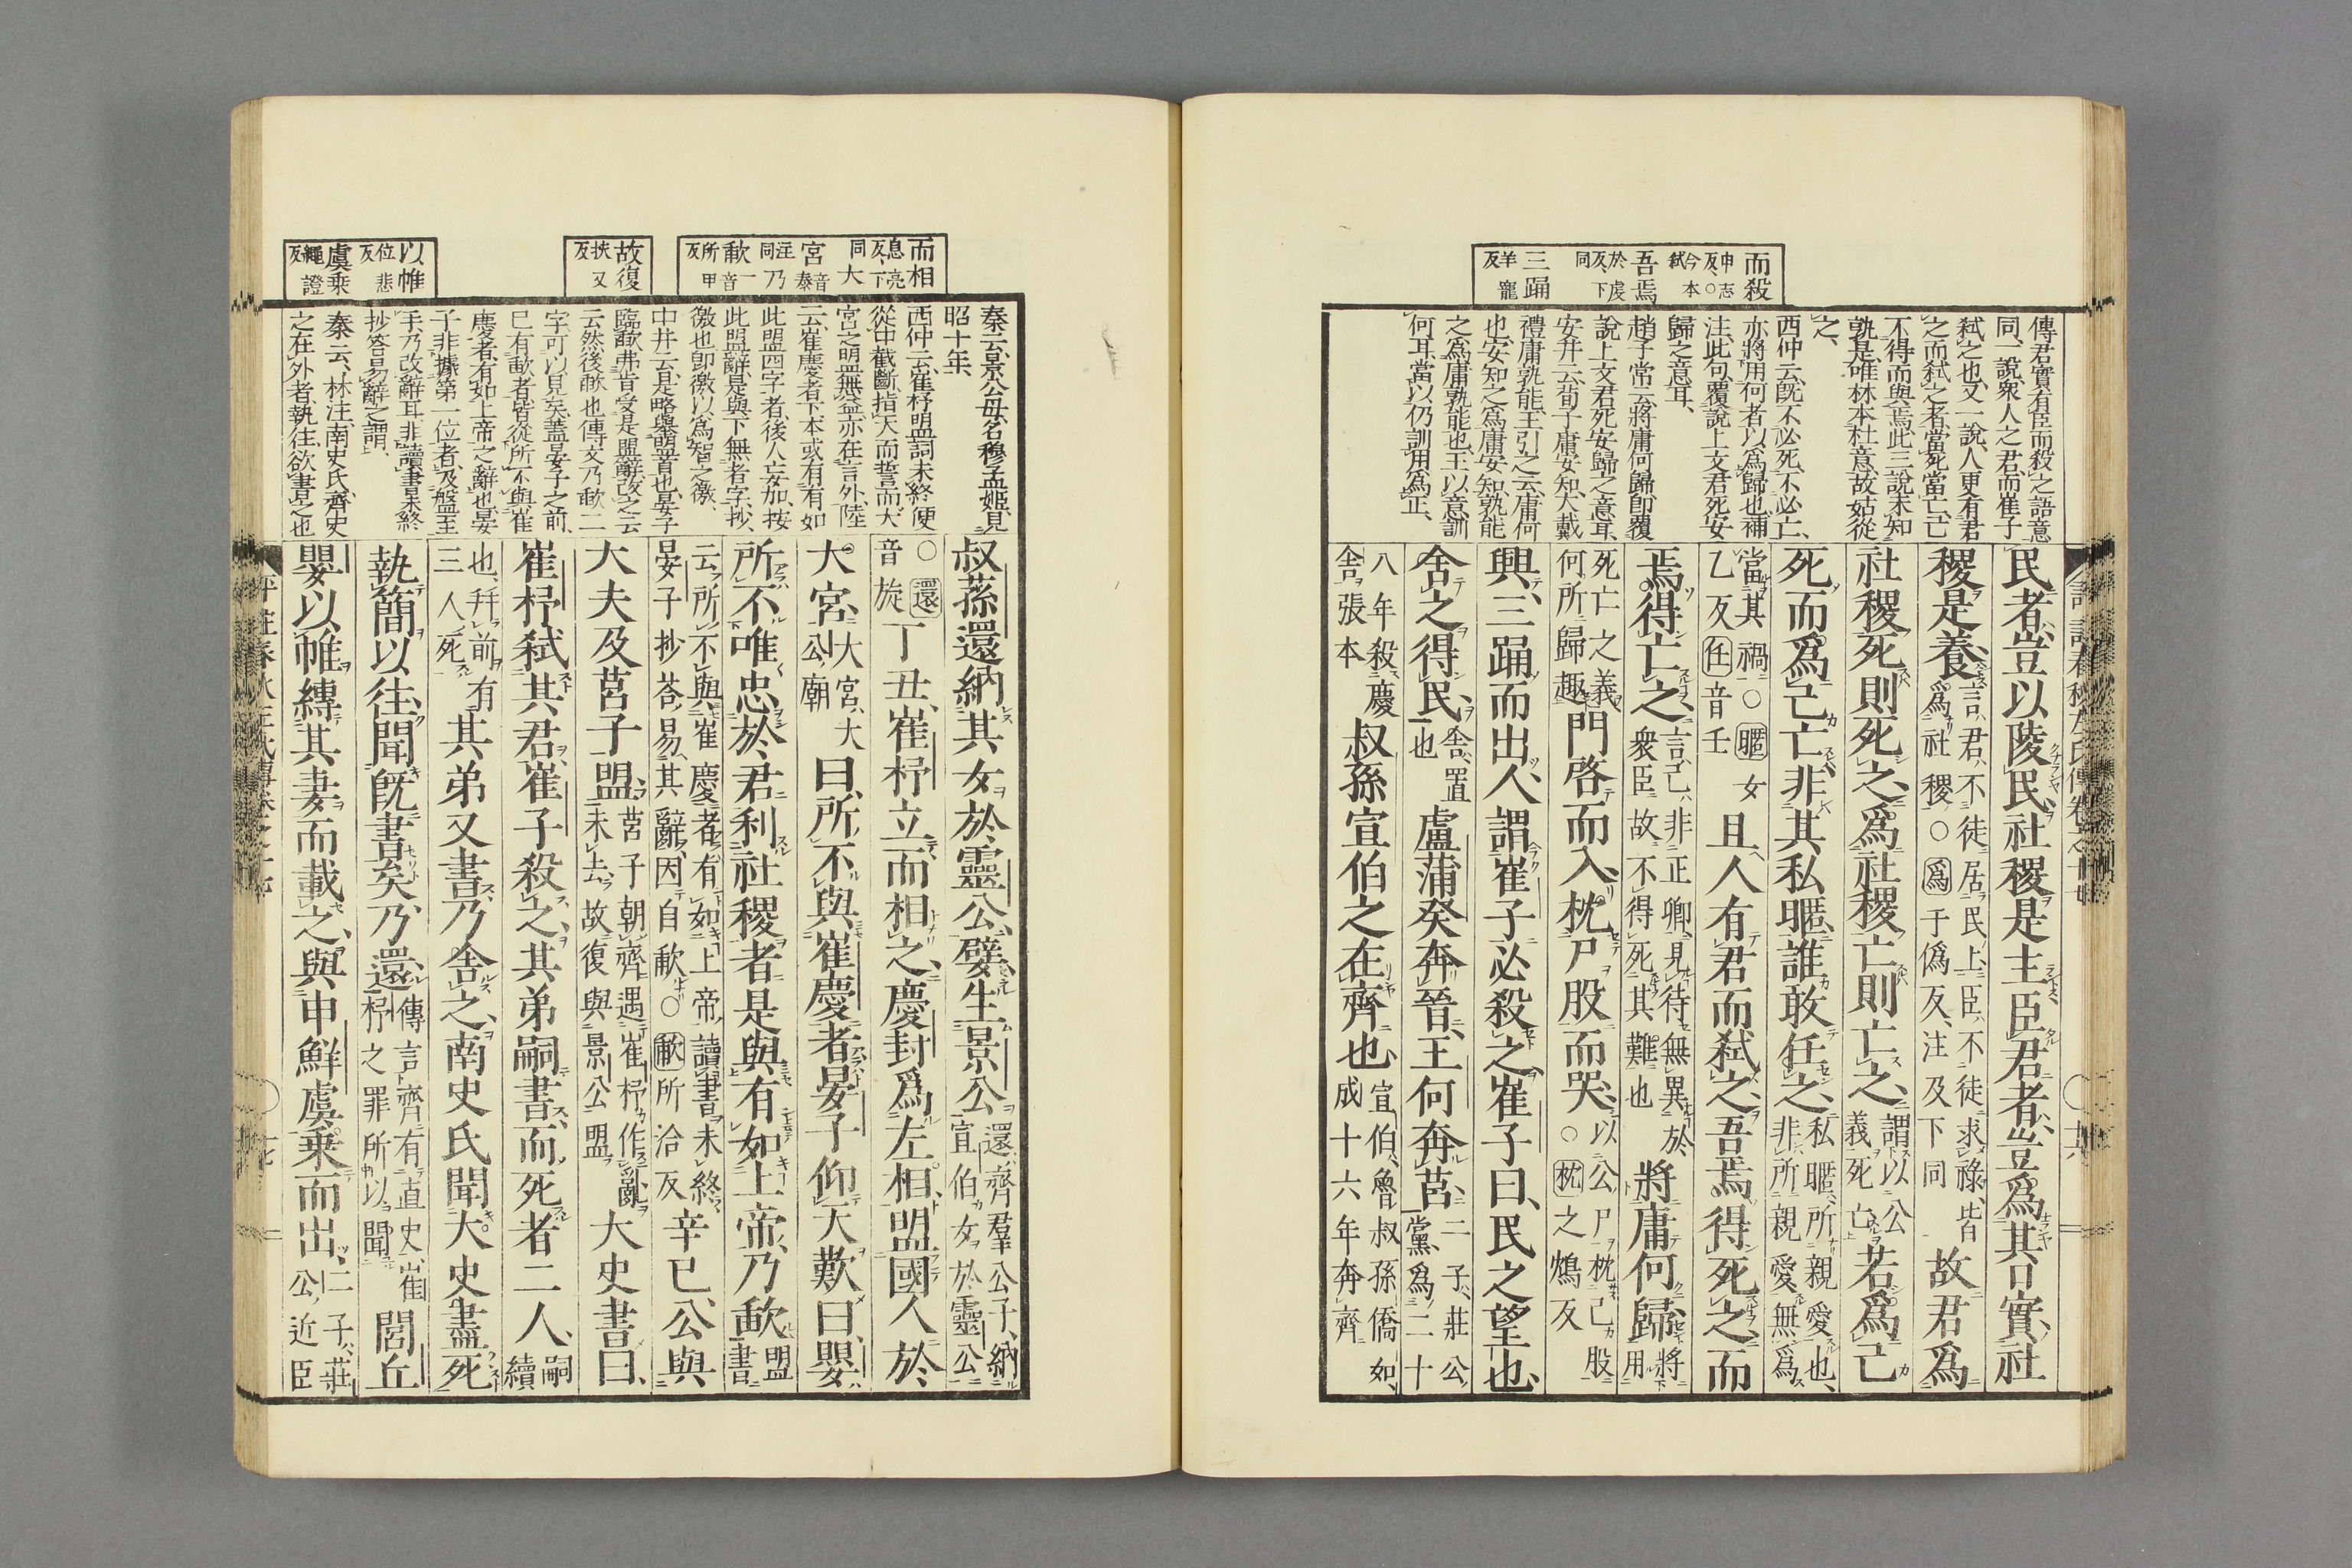 而殺
申志反、○今本弒
吾焉
於虔反、下同
三踊
羊寵反
傳、君實有臣而殺之語意
同、一說、衆人之君、而崔子
弒之也、又一說、人更有君
之而弒之者、當死當亡、己
不得而與焉、此三說未知
孰是、唯林本杜意、故姑從
之、
西仲云、既不必死、不必亡、
亦將用何者以爲歸也、補
注、此句覆說上文君死安
歸之意耳、
趙子常云、將庸何歸即覆
說上文君死安歸之意耳、
安井云、荀子庸安知、大戴
禮庸孰能、王引之云、庸何
也、安知之爲庸安知、孰能
之爲庸孰能也、王以意訓
何耳、當以仍訓用爲正、
民者、豈以陵民、社稷是主、臣君者、豈爲其口實、社
稷是養、言君不徒居民上、臣不徒求祿、皆爲社稷○爲于僞反、注及下同 故君爲
社稷死則死之、爲社稷亡則亡之、謂以公義死亡 若爲己
死而爲己亡、非其私暱、誰敢任之、私暱所親愛也、非所親愛、無爲
當其禍○暱女乙反 任音壬 且人有君而弒之、吾焉得死之、而
焉得亡之、言己非正卿、見待無異於衆臣、故不得死其難也 將庸何歸、將用
死亡之義、何所歸趣 門啓而入、枕尸股而哭、以公尸枕己股○枕之鴆反
興、三踊而出、人謂崔子必殺之、崔子曰、民之望也、
舍之得民、舍、置也 盧蒲癸奔晉、王何奔莒、二子、莊公黨、爲二十
八年殺慶舍張本 叔孫宣伯之在齊也、宣伯、魯叔孫僑如、成十六年奔齊
而相
息亮反、下同
大宮
音泰 注乃同
歃
音一所甲反
故復
扶又反
以帷
位悲反
虞乘
繩證反
秦云、景公母、名穆孟姬、見
昭十年、
西仲云、崔杼盟詞未終、便
從中截斷、指天而誓、而大
宮之明盟無益、亦在言外、陸
云、崔慶者下、本或有有如
此盟四字者、後人妄加、按
此盟辭、是與下無者字、抄、
徼也、即徼以爲智之徼、
中井云、是略與盟音也、晏子
臨歃弗肯受是盟辭、改之云
云、然後歃也、傳文乃歃二
字可以見矣、蓋晏子之前、
已有歃者、皆從所不與崔
慶者、有如上帝之辭也、晏
子非據第一位者、及盤至
手、乃改辭耳、非讀書未終
抄答易辭之謂、
秦云、林注、南史氏、齊史
之在外者、執往、欲書之也
叔孫還納其女於靈公、嬖、生景公、還、齊羣公子、納宣伯女於靈公
○還音旋 丁丑、崔杼立而相之、慶封爲左相、盟國人於
大宮、大宮、大公廟 曰、所不與崔慶者、晏子仰天歎曰、嬰
所不唯忠於君利社稷者是與、有如上帝、乃歃、盟書
云、所不與崔慶者、有如上帝、讀書未終、晏子抄荅、易其辭、因自歃○歃所洽反 辛巳、公與
大夫及莒子盟、莒子朝齊、遇崔杼作亂、未去、故復與景公盟 大史書曰、
崔杼弒其君、崔子殺之、其弟嗣書、而死者二人、嗣續
也、幷前有三人死 其弟又書、乃舍之、南史氏聞大史盡死、
執簡以往、聞既書矣、乃還、傳言齊有直史、崔杼之罪所以聞 閭丘
嬰以帷縛其妻而載之、與申鮮虞乘而出、二子、莊公近臣